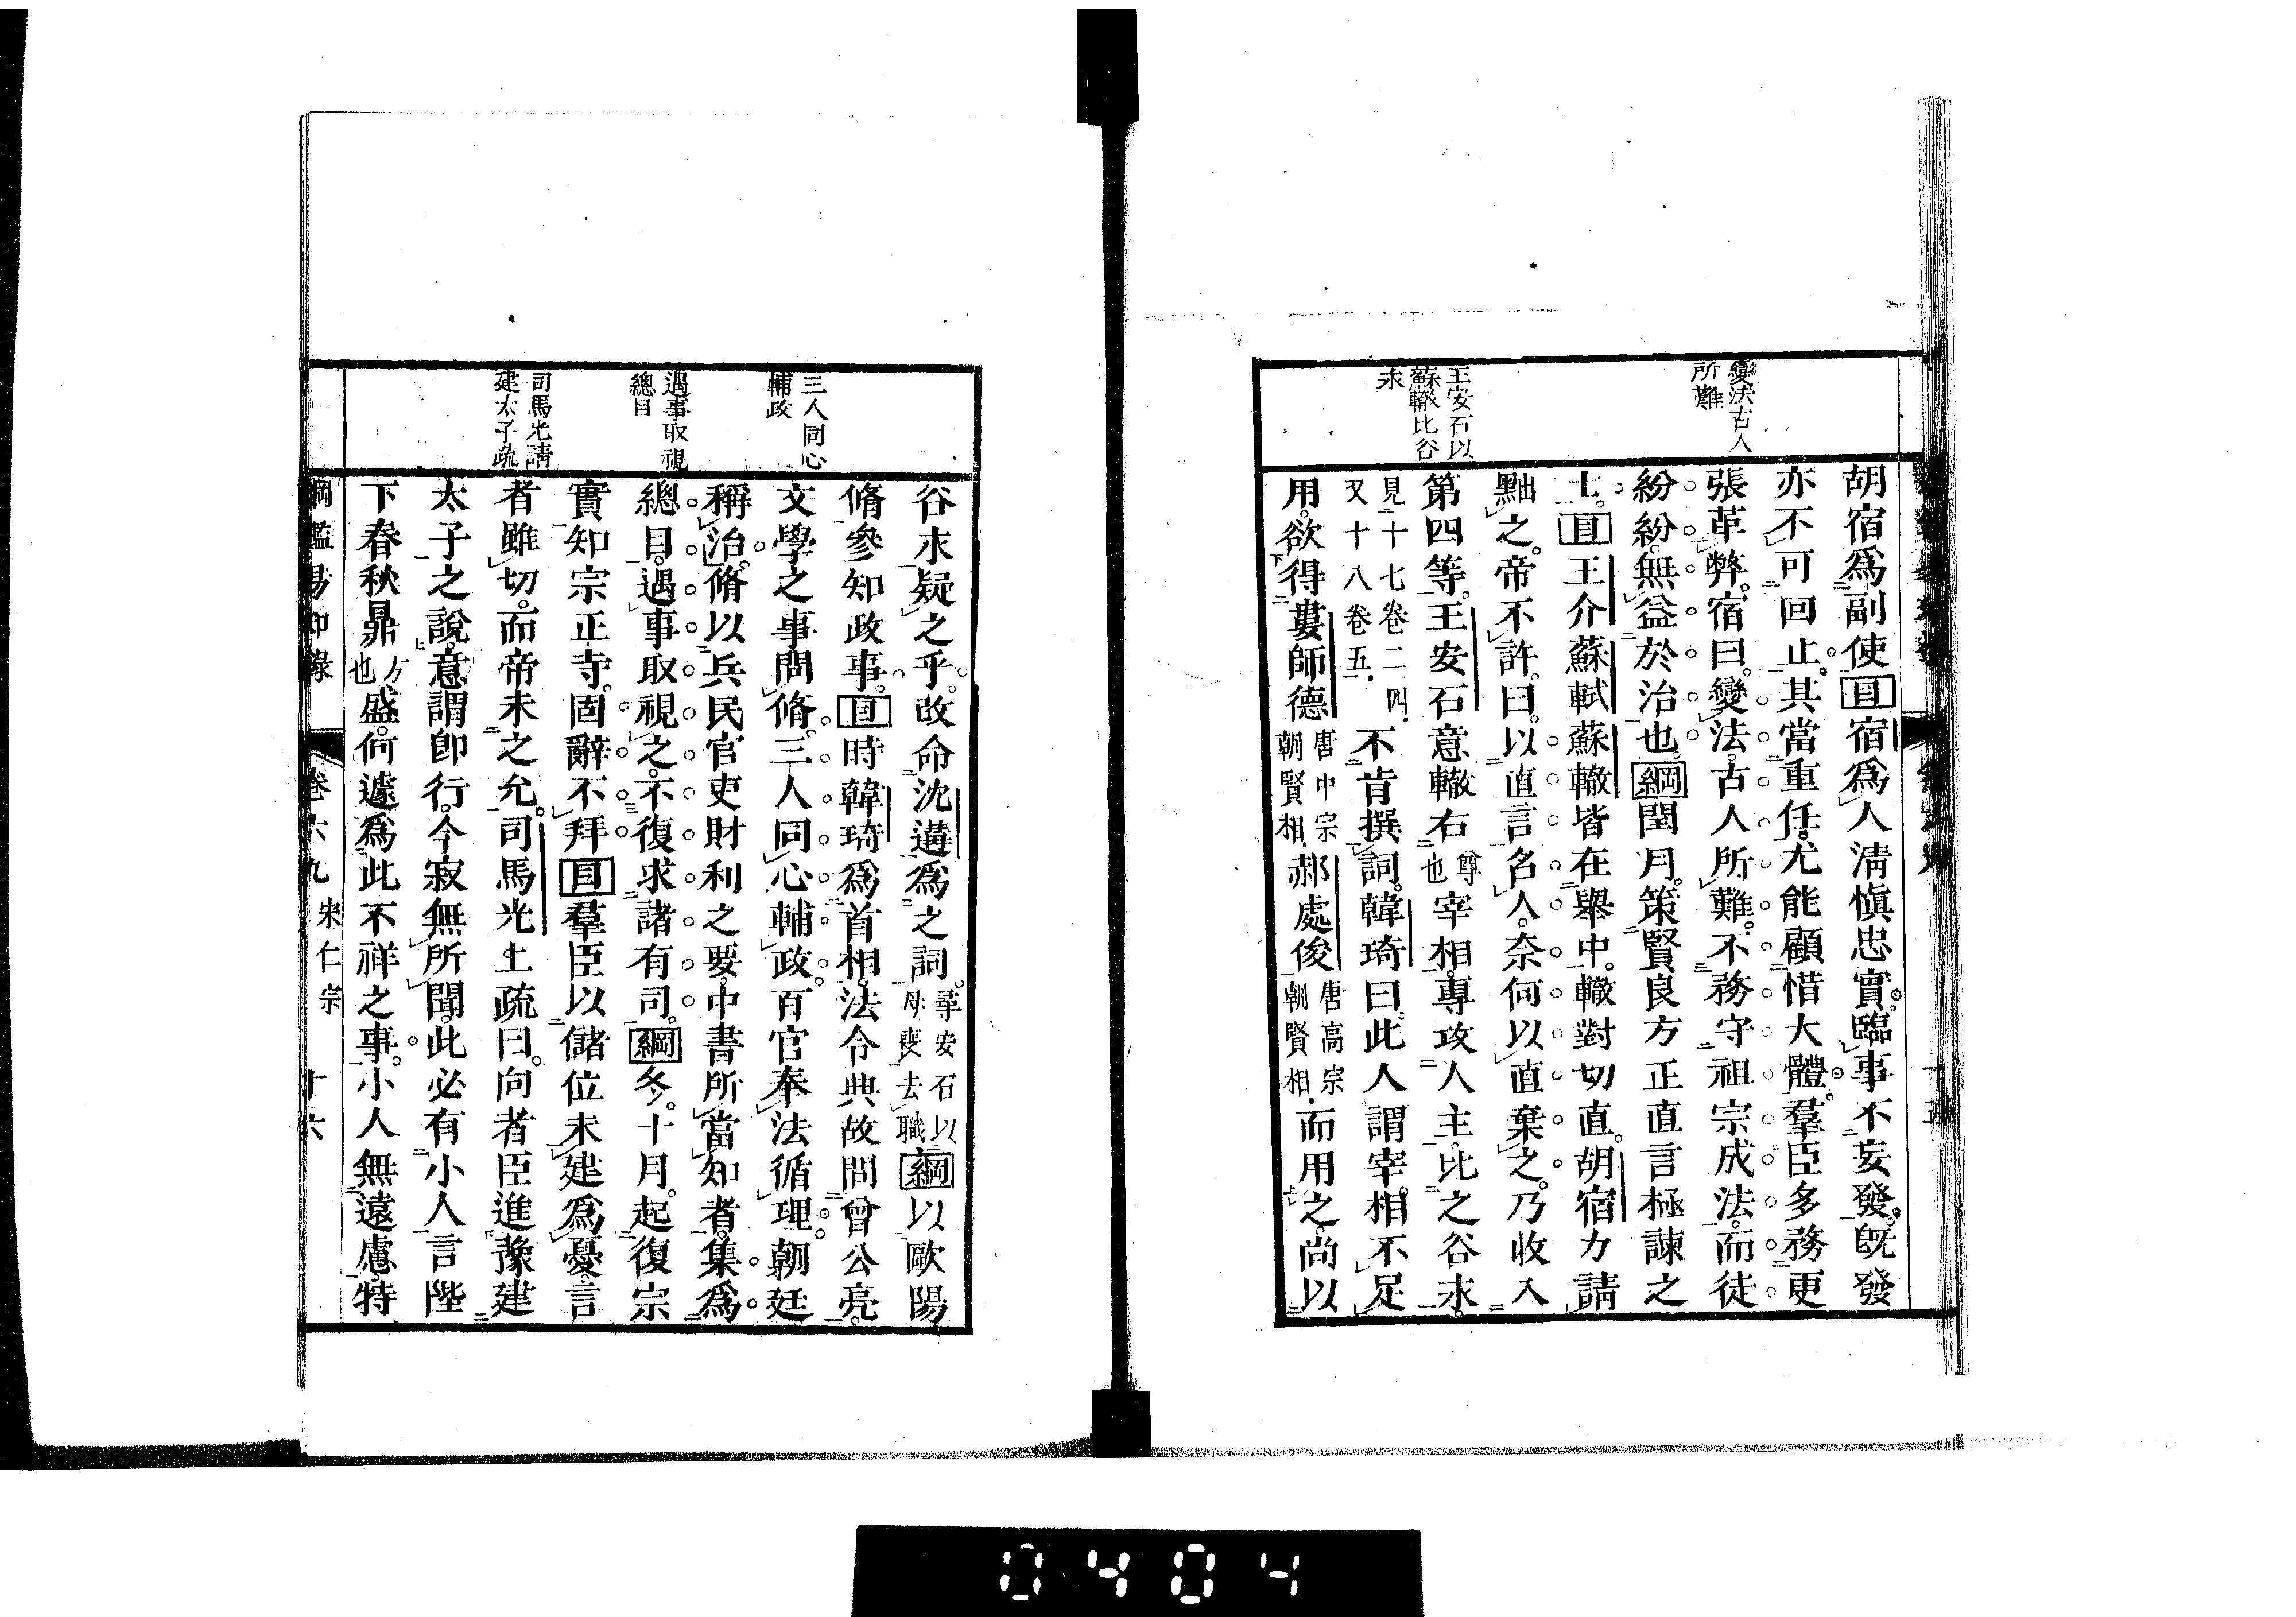 變法古人
所難
王安石以
蘇轍比谷
永
胡宿爲副使目宿爲人淸愼忠實臨事不妄發旣發
亦不可回止其當重任尤能顧惜大體羣臣多務更
張革弊宿曰變法古人所難不務守祖宗成法而徒
紛紛無益於治也綱閏月策賢良方正直言極諫之
士目王介蘇軾蘇轍皆在舉中轍對切直胡宿力請
黜之帝不許曰以直言名人奈何以直棄之乃收入
第四等王安石意轍右尊也宰相專攻人主比之谷永
見十七卷二四又十八卷五不肯撰詞韓琦曰此人謂宰相不足
用欲得婁師德唐中宗朝賢相郝處俊唐高宗朝賢相而用之尚以
三人同心
輔政
遇事取視
總目
司馬光請
建太子疏
谷永疑之乎改命沈遘爲之詞尋安石以母喪去職綱以歐陽
脩參知政事目時韓琦爲首相法令典故問曾公亮
文學之事問脩三人同心輔政百官奉法循理朝廷
稱治脩以兵民官吏財利之要中書所當知者集爲
總目遇事取視之不復求諸有司綱冬十月起復宗
實知宗正寺固辭不拜目羣臣以儲位未建爲憂言
者雖切而帝未之允司馬光上疏曰向者臣進豫建
太子之說意謂卽行今寂無所聞此必有小人言陛
下春秋鼎方也盛何遽爲此不祥之事小人無遠慮特
綱鑑易知錄 卷六九 宋仁宗 十六
0404